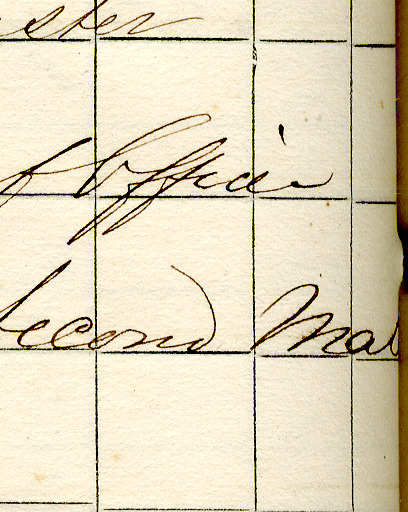 ster
f Officer
Second Mat